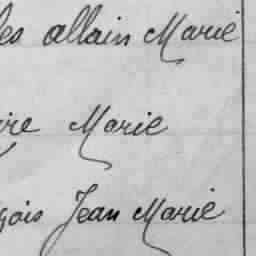 les allain Marie
ire Marie
çois Jean Marie